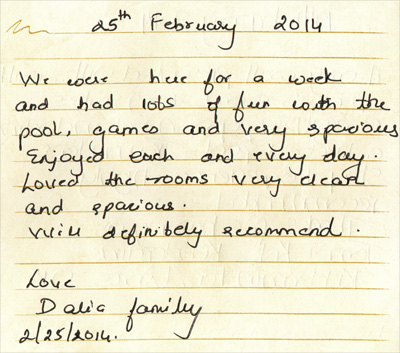 25th February 2014
We were here for a week
and had lots of fun with the
pool, games and very spacious
Enjoyed each and every day.
Loved the rooms very clean
and spacious.
Will definitely recommend.
Love
Dalia family
2/25/2014.